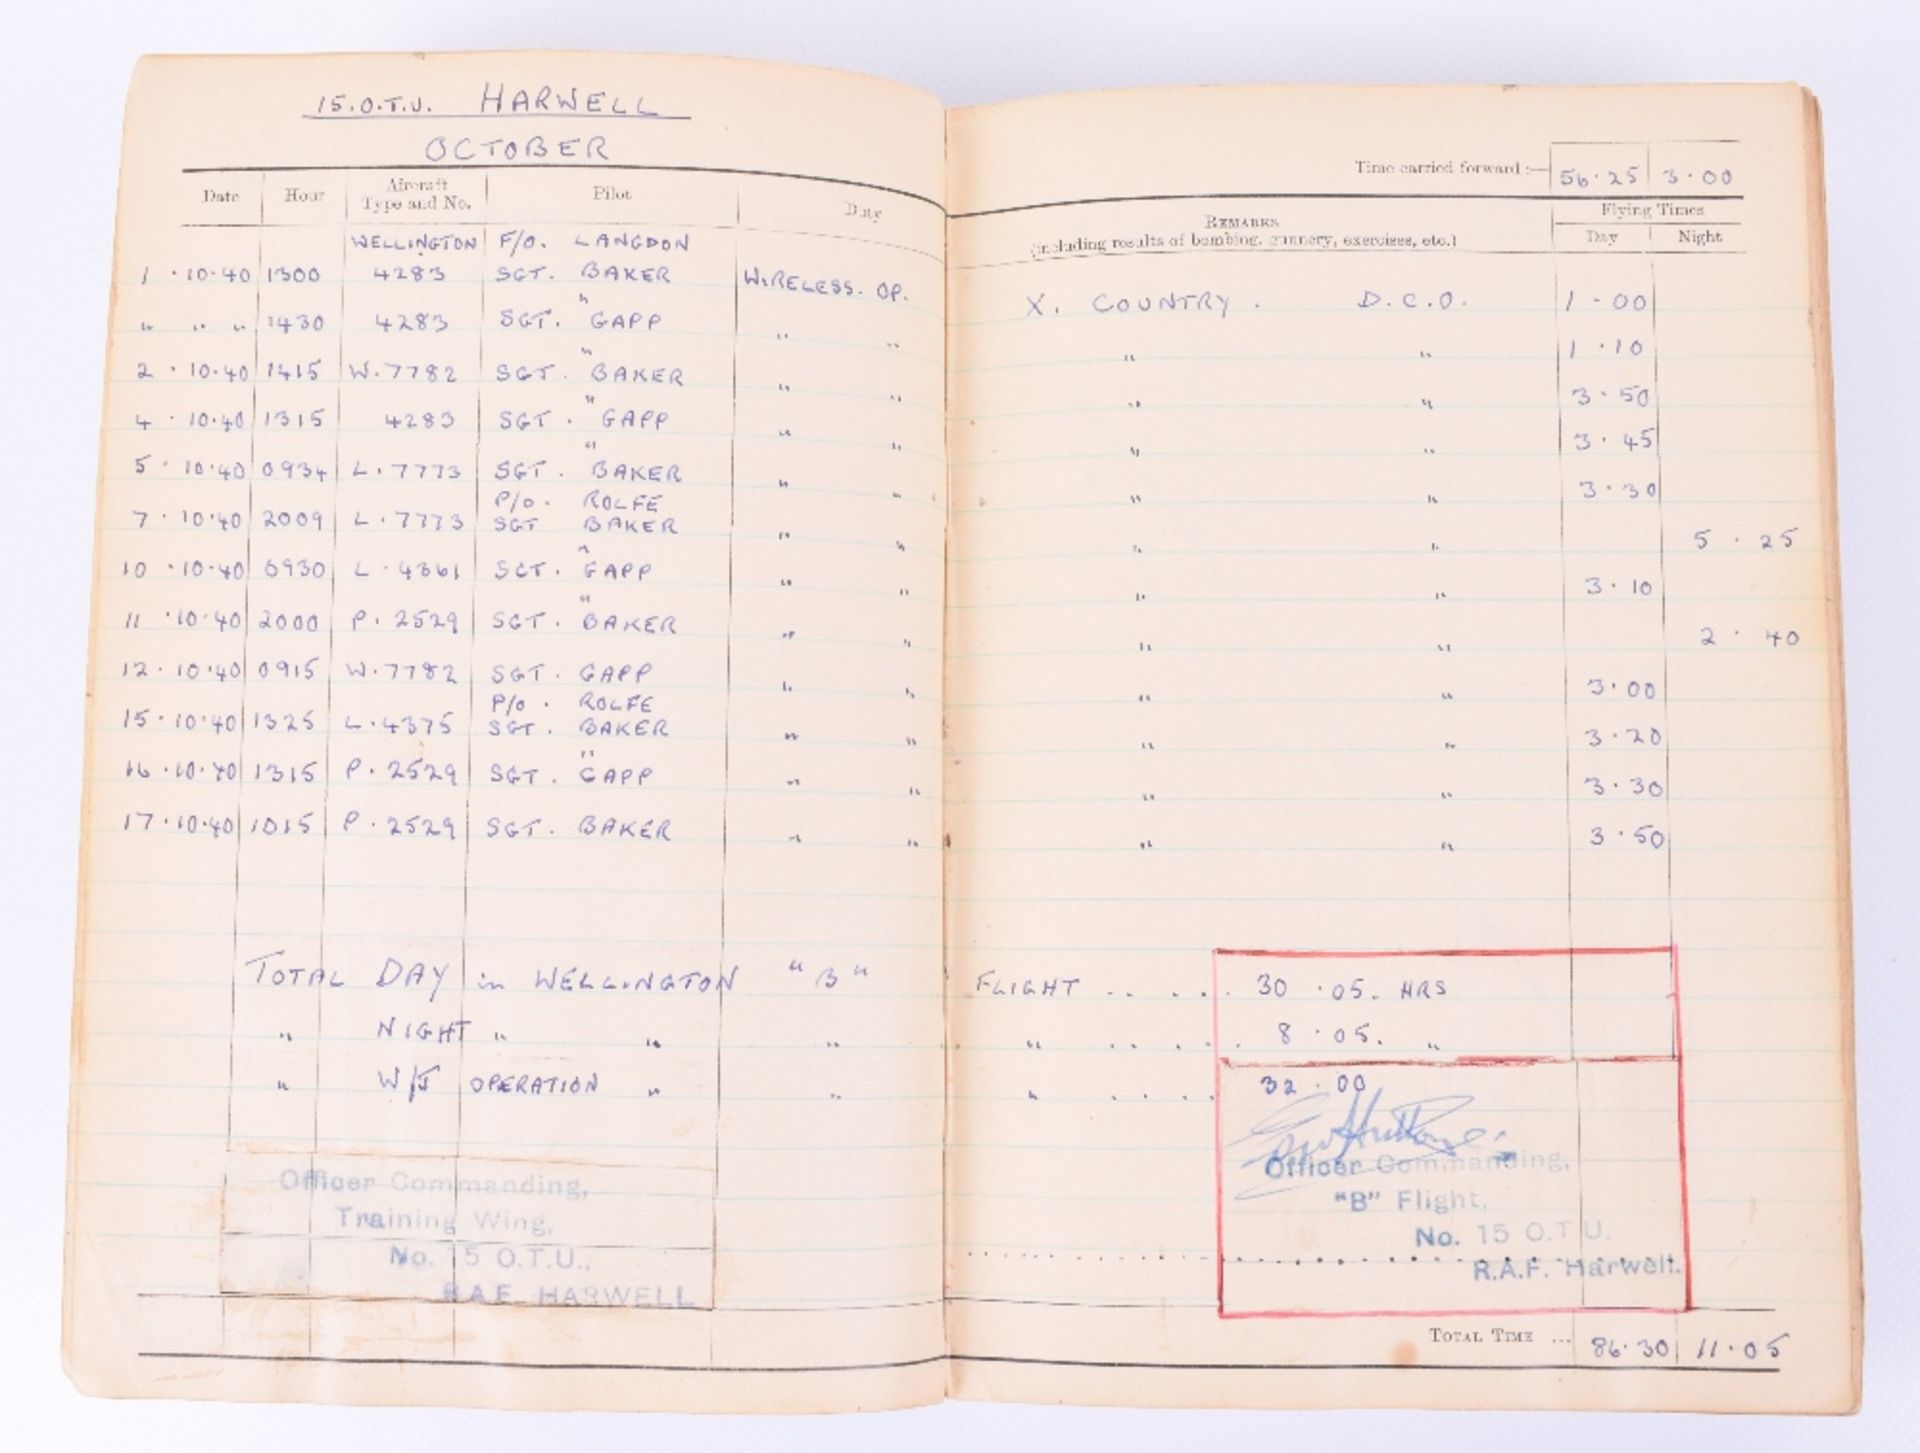 15.O.T.U. HARWELL
OCTOBER
Time carried forward :— 56.25 3.00
Date Hour Aircraft Type and No. Pilot Duty REMARKS (including results of bombing, gunnery, exercises, etc.) Flying Times Day Night
WELLINGTON F/O. LANGDON
1.10.40 1300 4283 SGT. BAKER WIRELESS. OP. X. COUNTRY. D.C.O. 1.00
" " " 1430 4283 SGT. " GAPP " " " " 1.10
2.10.40 1415 W.7782 SGT. " BAKER " " " " 3.50
4.10.40 1315 4283 SGT. " GAPP " " " " 3.45
5.10.40 0934 L.7773 SGT. " BAKER " " " " 3.30
P/O. ROLFE
7.10.40 2009 L.7773 SGT BAKER " " " " 5.25
10.10.40 0930 L.4361 SGT. " GAPP " " " " 3.10
11.10.40 2000 P.2529 SGT. " BAKER " " " " 2.40
12.10.40 0915 W.7782 SGT. GAPP " " " " 3.00
P/O. ROLFE
15.10.40 1325 L.4375 SGT. BAKER " " " " 3.20
16.10.40 1315 P.2529 SGT. " GAPP " " " " 3.30
17.10.40 1015 P.2529 SGT. BAKER " " " " 3.50
TOTAL DAY in WELLINGTON "B" FLIGHT ..... 30.05. HRS
" NIGHT " " " " ..... 8.05. "
" W/T OPERATION " " " ..... 32.00
Officer Commanding,
Training Wing,
No. 15 O.T.U.,
R.A.F. HARWELL
Officer Commanding,
"B" Flight,
No. 15 O.T.U.
R.A.F. Harwell.
TOTAL TIME ... 86.30 11.05